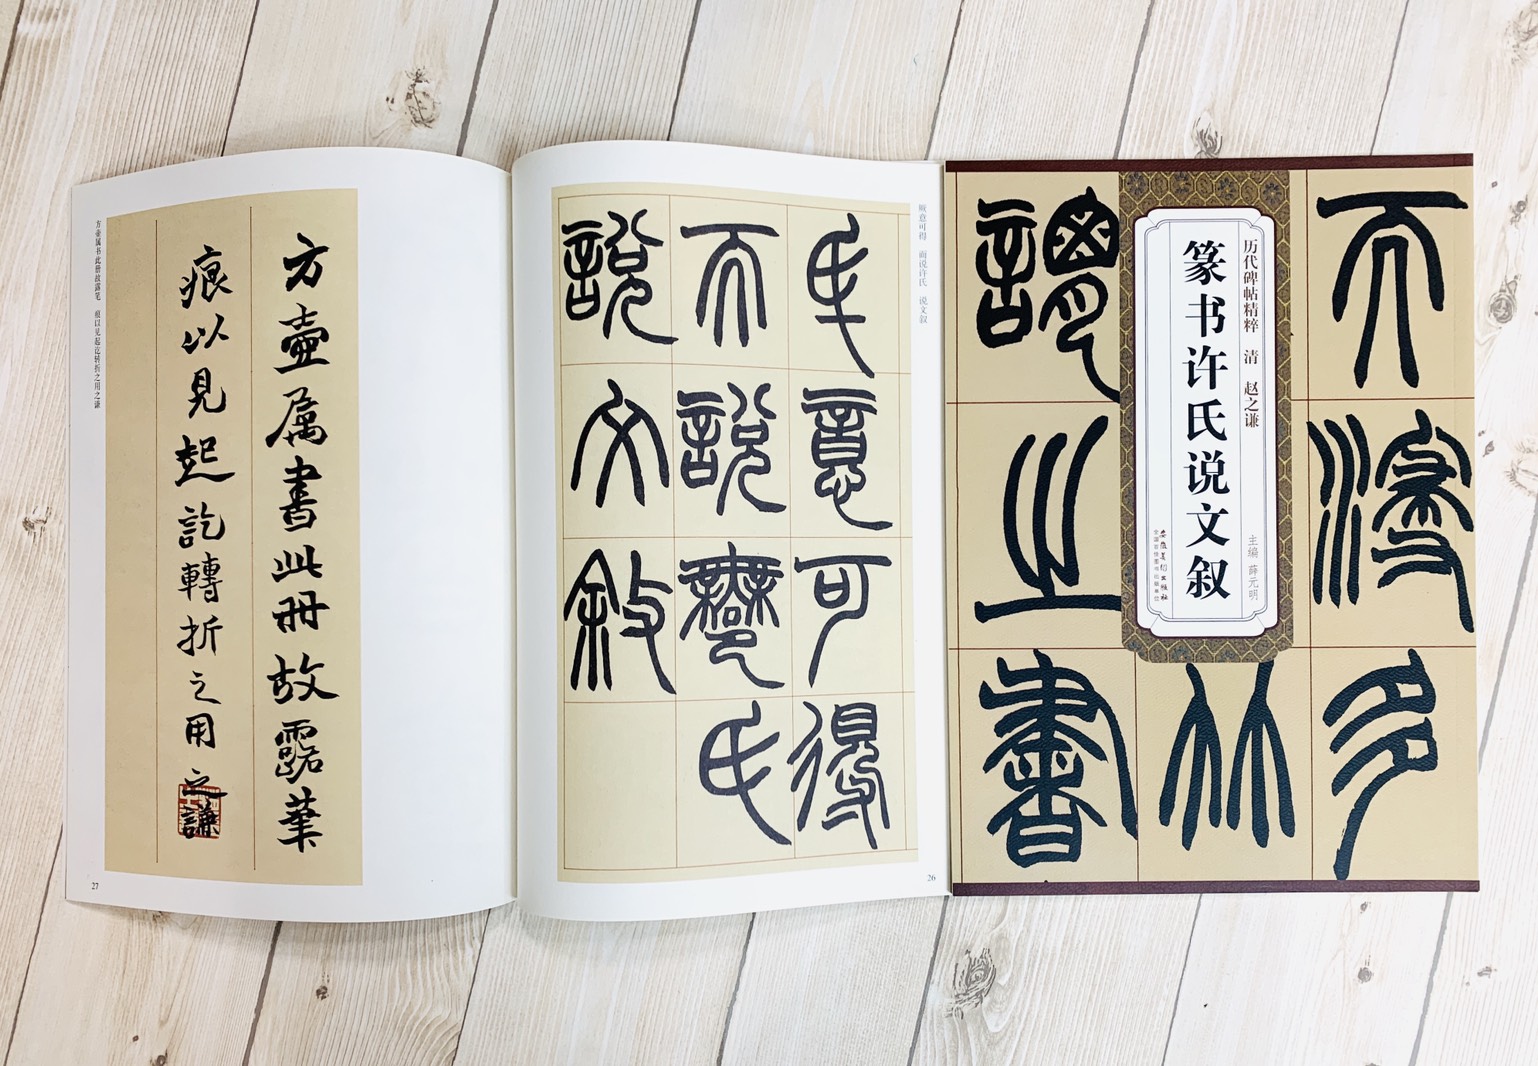 而浸多
竹
謂之書
历代碑帖精粹 清 赵之谦
篆书许氏说文叙
主编 薛元明
安徽美术出版社
全国百佳图书出版单位
厥意可得 而说许氏 说文叙
氒意可得
而說鄦氏
說文敘
26
方壺属書此册故露筆
痕以見起訖轉折之用之謙
方壶属书此册故露笔 痕以见起讫转折之用之谦
27